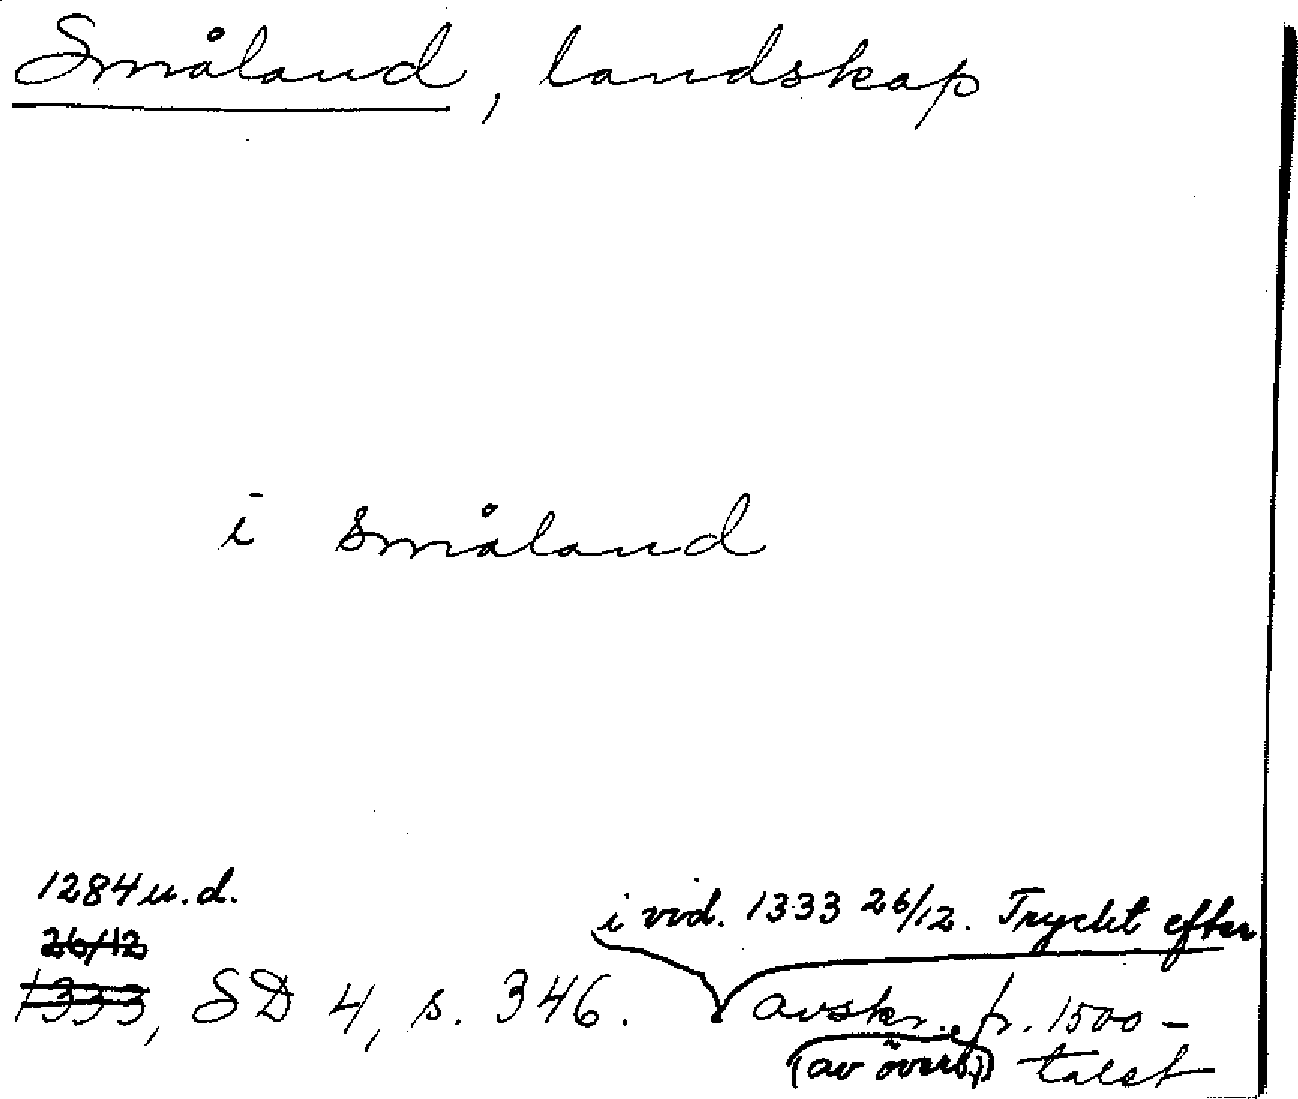 Småland, landskap
i småland
1284 u.d.
26/12
1333, SD 4, s. 346.
i vid. 1333 26/12. Tryckt efter
avskr. fr. 1500-
(av övers.) talet